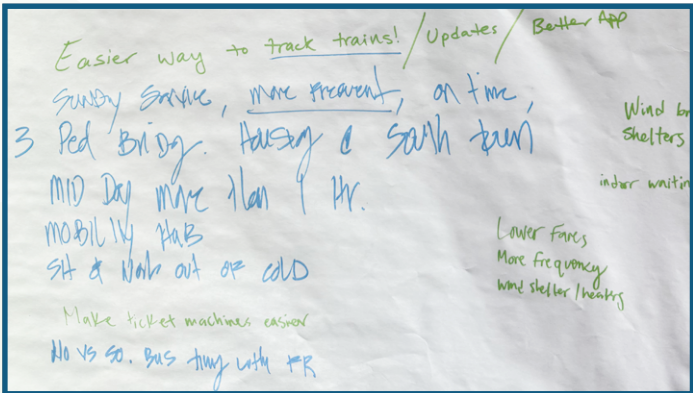 Easier way to track trains! / Updates / Better App
Sunday Service, more frequent, on time,
3 Ped Bridg. Housing @ South town
MID Day more than 1 Hr.
MOBILITY HUB
SH & Work out of COLD
Make ticket machines easier
No vs So. Bus timy with
Wind br
Shelters
indoor waitin
Lower Fares
More frequency
wind shelter / heating